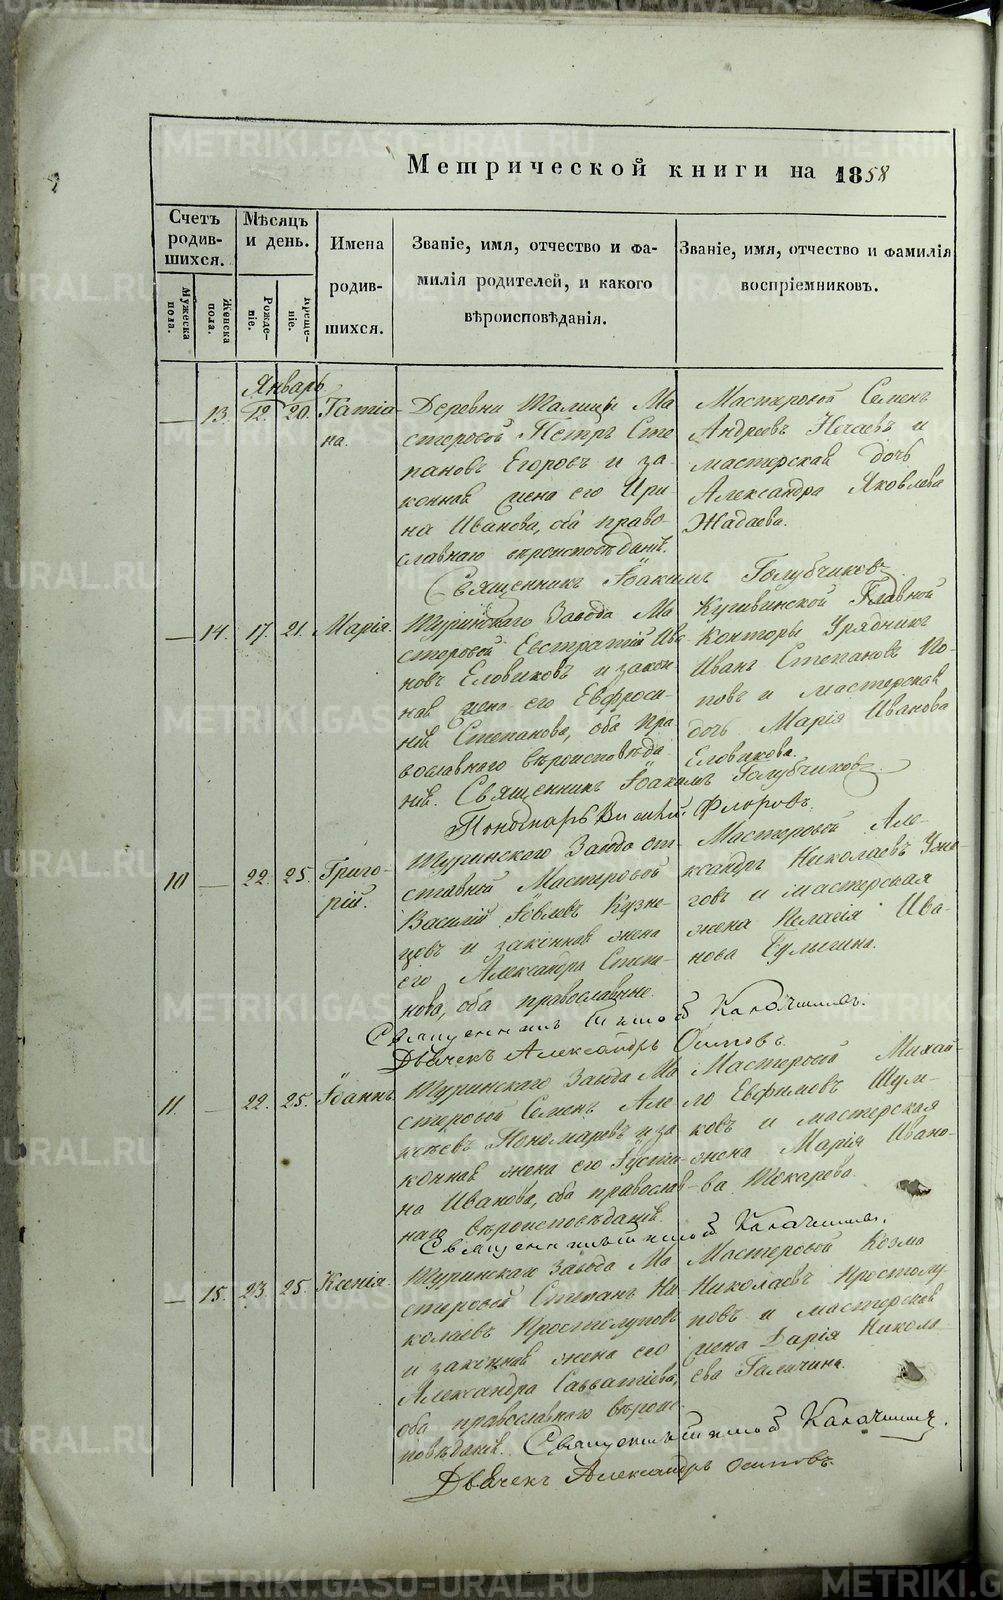 Метрической книги на 1858
Счетъ родившихся.
Мѣсяцъ и день.
Имена родившихся.
Званіе, имя, отчество и фамилія родителей, и какого вѣроисповѣданія.
Званіе, имя, отчество и фамилія воспріемниковъ.
Мужеска пола.
Женска пола.
Рожденіе.
Крещеніе.
Январь
13. 12. 20. Татіана.
Деревни Талицы Мастеровой Петръ Степановъ Егоровъ и законная жена его Ирина Иванова, оба православнаго вѣроисповѣданія.
Мастеровой Семенъ Андреевъ Нечаевъ и мастерская дочь Александра Яковлева Жадаева.
Священникъ Іоакимъ Голубчиковъ
14. 17. 21. Марія.
Туринскаго Завода Мастеровой Евстратій Ивановъ Еловиковъ и законная жена его Евфросинія Степанова, оба православнаго вѣроисповѣданія.
Кушвинской Главной Конторы Урядникъ Иванъ Степановъ Поповъ и мастерская дочь Марія Иванова Еловикова.
Священникъ Іоакимъ Голубчиковъ.
Пономарь Флоровъ.
10 22. 25. Григорій.
Туринскаго Завода отставный Мастеровой Василій Іовлевъ Кузнецовъ и законная жена его Александра Степанова, оба православные.
Мастеровой Александръ Николаевъ и мастерская жена Пелагія Иванова Булыгина.
Священникъ Калачниковъ.
Дьячекъ Александръ Осиповъ.
11. 22. 25. Іоаннъ
Туринскаго Завода Мастеровой Семенъ Алексѣевъ Пономаревъ и законная жена его Іустина Иванова, оба православнаго вѣроисповѣданія.
Мастеровой Михайло Евфимовъ Шумковъ и мастерская жена Марія Иванова Токарева.
Священникъ
15. 23. 25. Ксенія.
Туринскаго Завода Мастеровой Степанъ Николаевъ Простолуповъ и законная жена его Александра Савватіева, оба православнаго вѣроисповѣданія.
Мастеровой Козма Николаевъ Простолуповъ и мастерская жена Дарія Николаева Галичина.
Священникъ
Дьячекъ Александръ Осиповъ.
METRIKI.GASO-URAL.RU